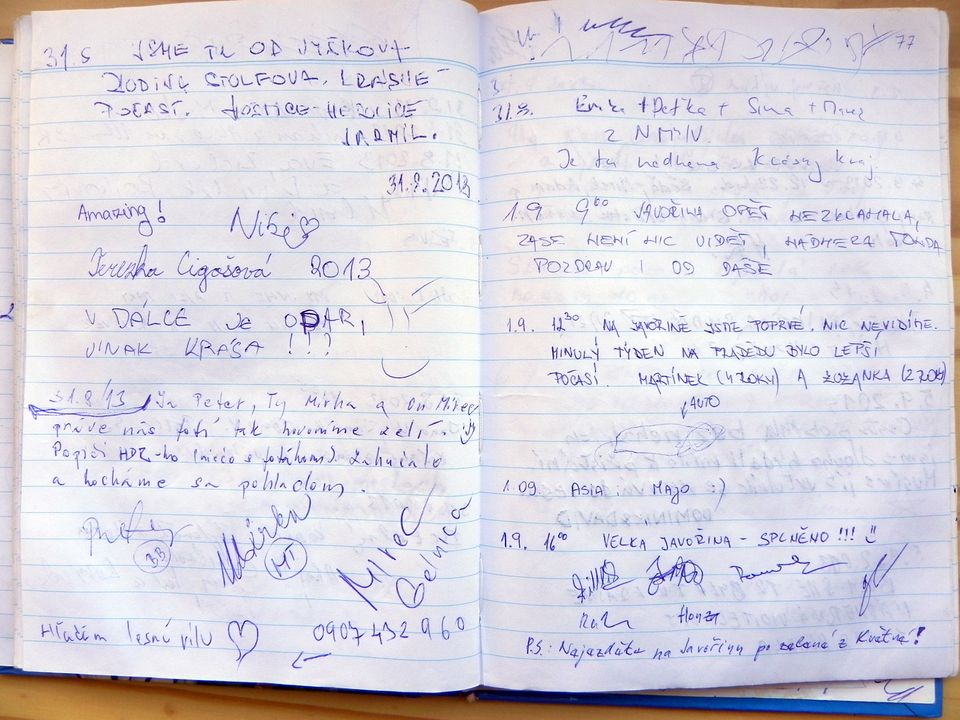 31.8 JSME TU OD VYŠKOVA
RODINA STOLFOVA. KRÁSNÉ
POČAST. HOŠTICE-HEROLTICE
JARMIL.
31.8.2013
Amazing!
Niki
Terezka Cigošová 2013
V DÁLCE JE OPAR,
JINAK KRÁSA !!!
31.8/13 Ja Peter, Ty Mirka a On Mirec
práve nás fotí tak hovoríme
Popiči
a kocháme sa pohľadom.
BB
MT
Mirec
Gelnica
Hľadám lesnú vílu
0907 432 960
77
31.8. Erika + Peťka + Sima +
z NMNV.
Je tu nádherna Krásny Kraj
1.9 9⁰⁰ JAVOŘINA OPĚT NEZKLAMALA,
ZASE NENÍ NIC VIDĚT, NÁDHERA
POZDRAV I OD DÁŠE
1.9. 12³⁰ NA JAVOŘINĚ JSME POPRVÉ, NIC NEVIDÍME.
MINULÝ TÝDEN NA PRADĚDU BYLO LEPŠÍ
POČASÍ. MARTÍNEK (4 ROKY) A ZUZANKA (2 ROKY)
AUTO
1.09. ASIA i MAJO :)
1.9. 16⁰⁰ VELKÁ JAVOŘINA - SPLNĚNO !!!
Honza
P.S.: na Javořinu po zelené z Květné!